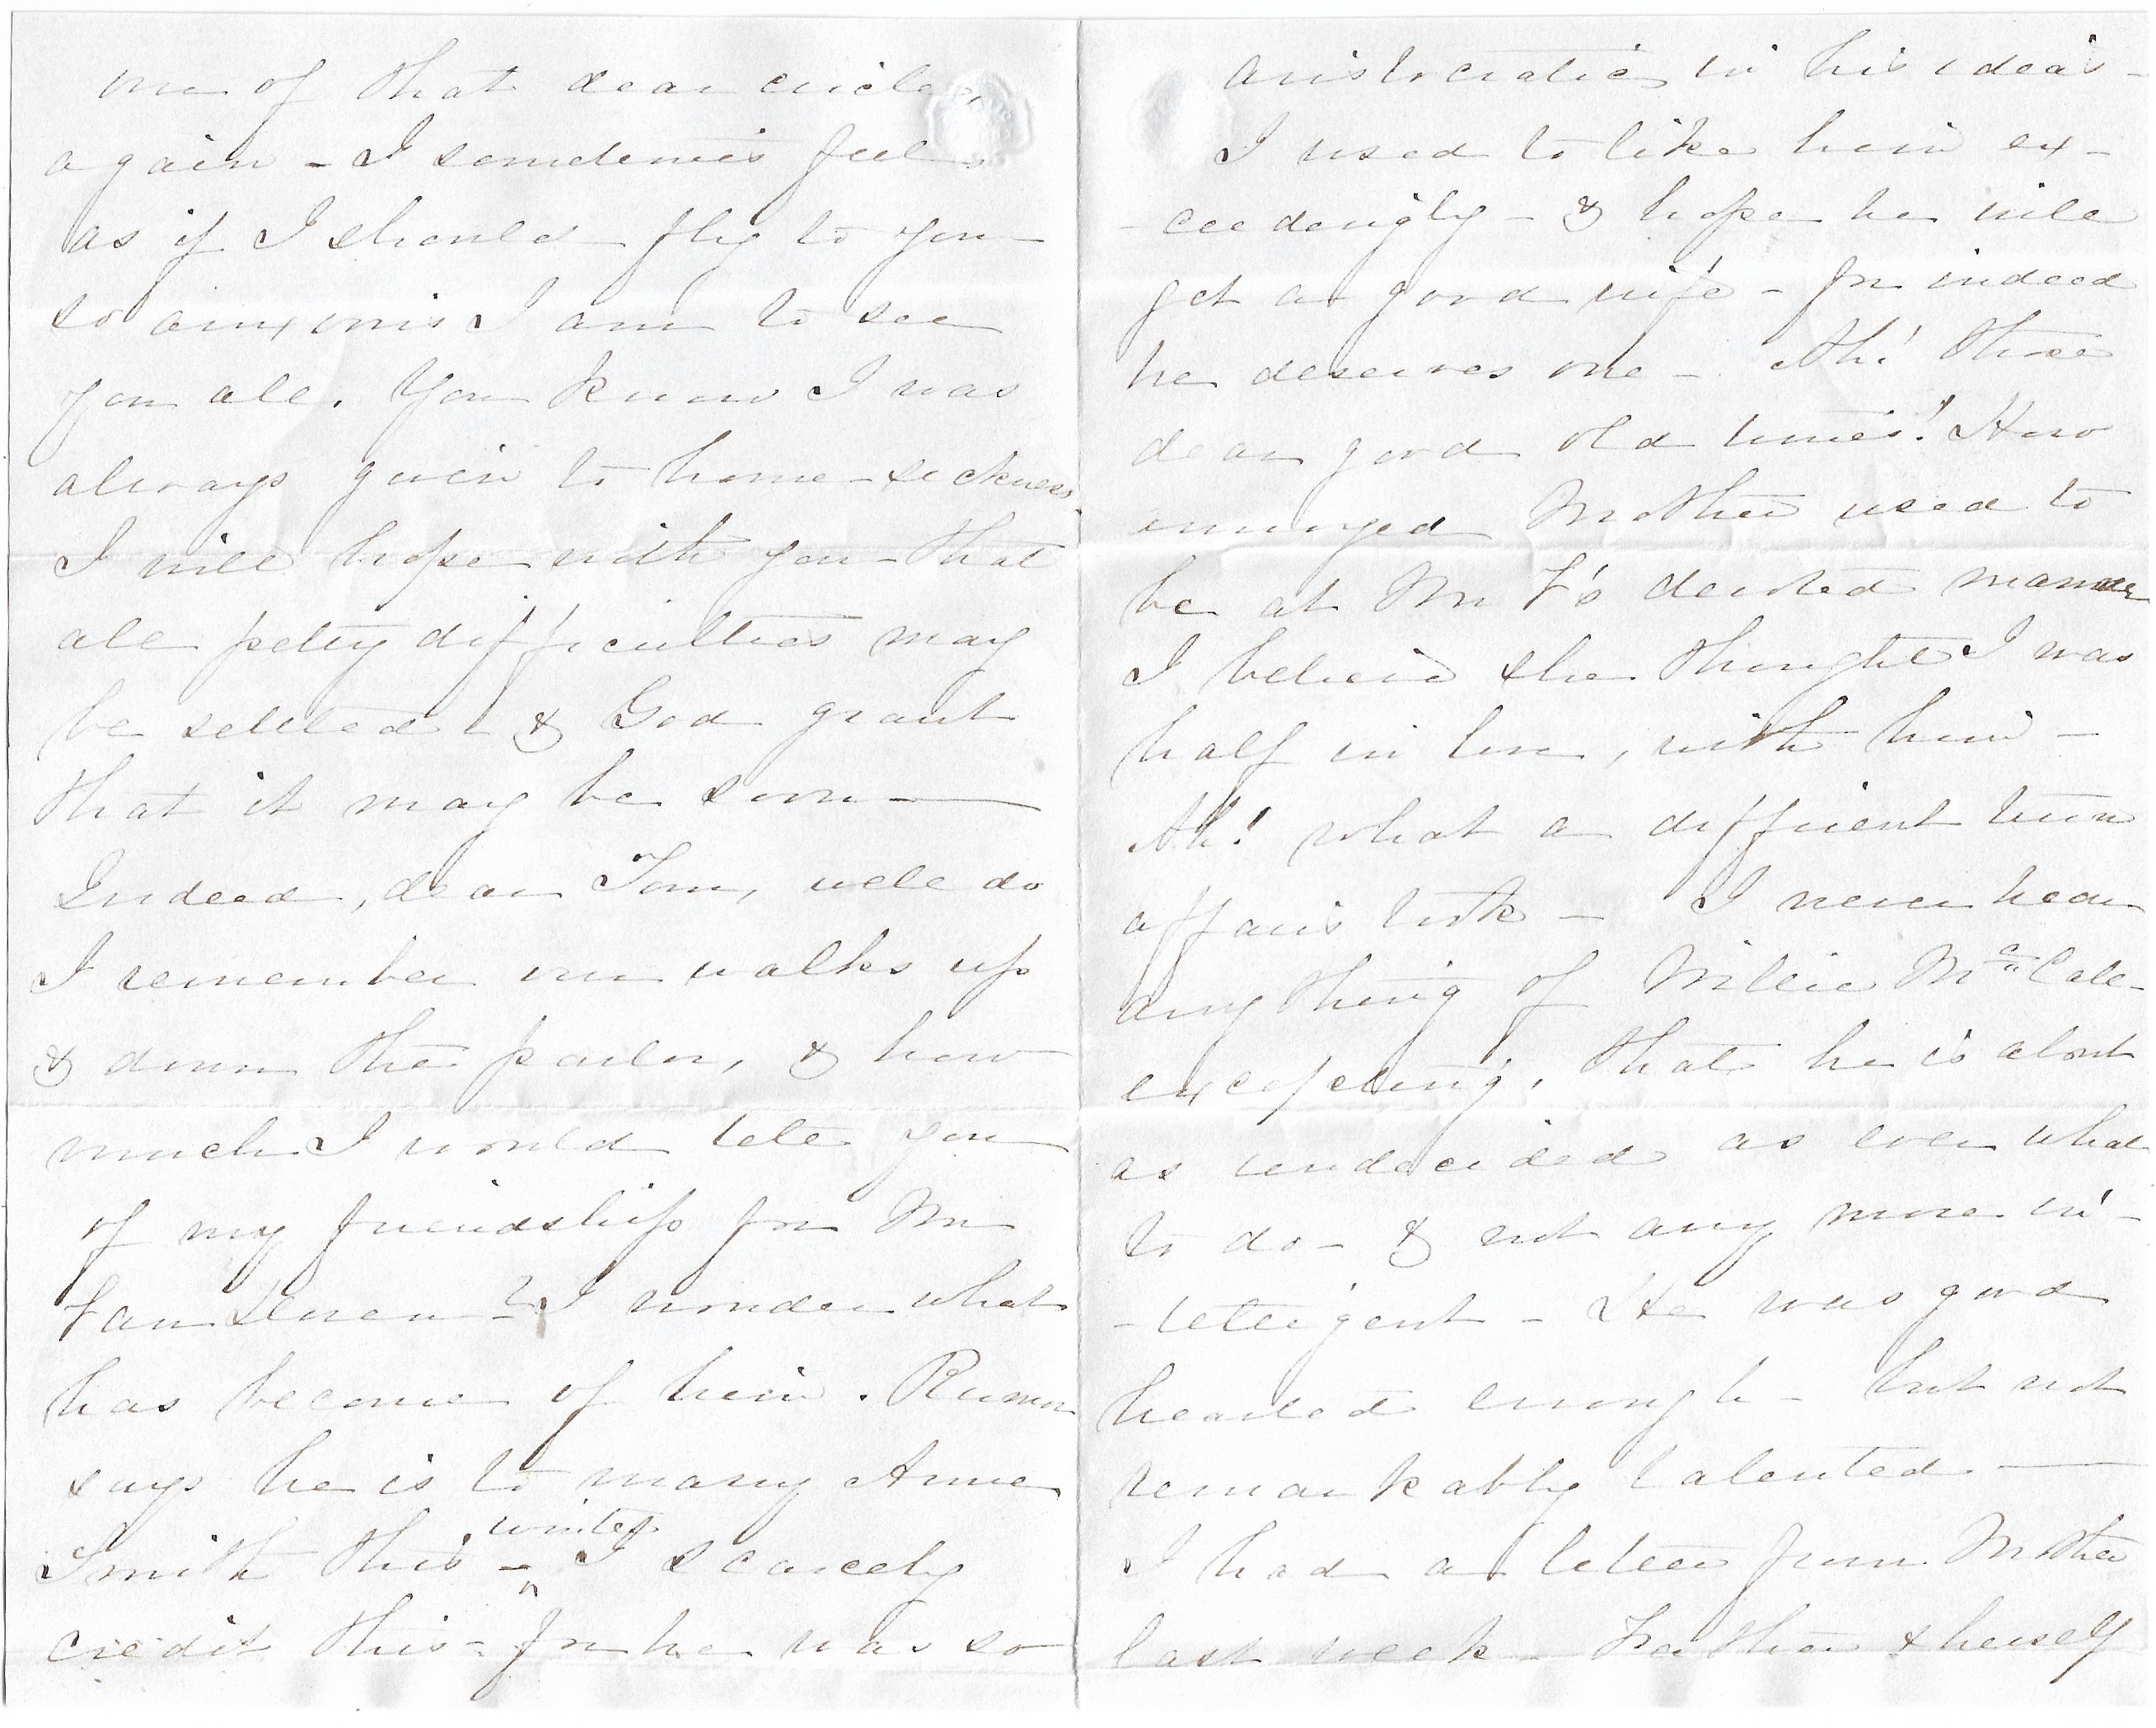 one of that dear circle,
again - I sometimes feel
as if I should fly to you
so anxious I am to see
you all. You know I was
always given to home-sickness.
I will hope with you - that
all petty difficulties may
be settled - & God grant
that it may be soon —
Indeed, dear Tom, well do
I remember our walks up
& down the parlor, & how
much I would tell you
of my friendship for Mr
Van - I wonder what
has become of him. Rumor
says he is to marry Anne
winter
Smith this - I scarcely
credit this - for he was so
aristocratic in his ideas -
I used to like him ex-
-ceedingly - & hope he will
get a good wife - for indeed
he deserves one - Ah! those
dear good old times! How
annoyed Mother used to
be at Mr V's devoted manner
I believe she thought I was
half in love, with him -
Ah! what a different turn
affairs took - I never hear
anything of Willie McCall -
excepting, that he is about
as undecided as ever what
to do - & not any more in-
-telligent - He was good
hearted enough - but not
remarkably talented. —
I had a letter from Mother
last week - Father & herself